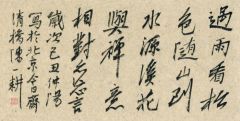 過雨看松
色随山到
水源溪花
與禪意
相對亦忘言
歲次己丑仲陽
寫於北京齋
陳耕